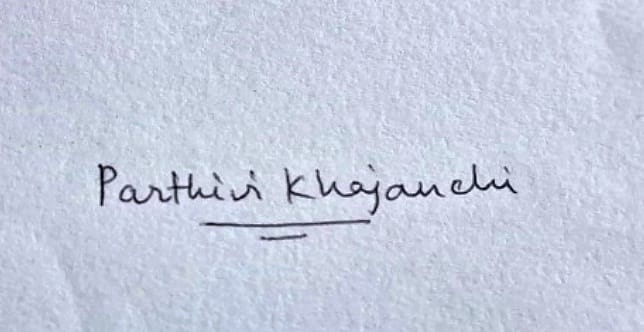 Parthivi Khajanchi